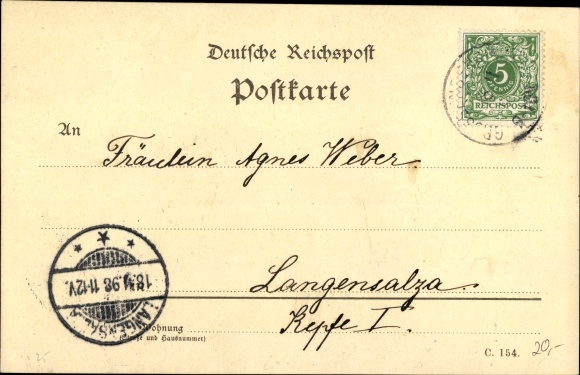 Deutsche Reichspost
Postkarte
5
PFENNIG
REICHSPOST
An
Fräulein Agnes Weber
Langensalza
Wohnung
(Straße und Hausnummer)
I.
LANGENSALZA
98. 11-12V.
C. 154.
20,-